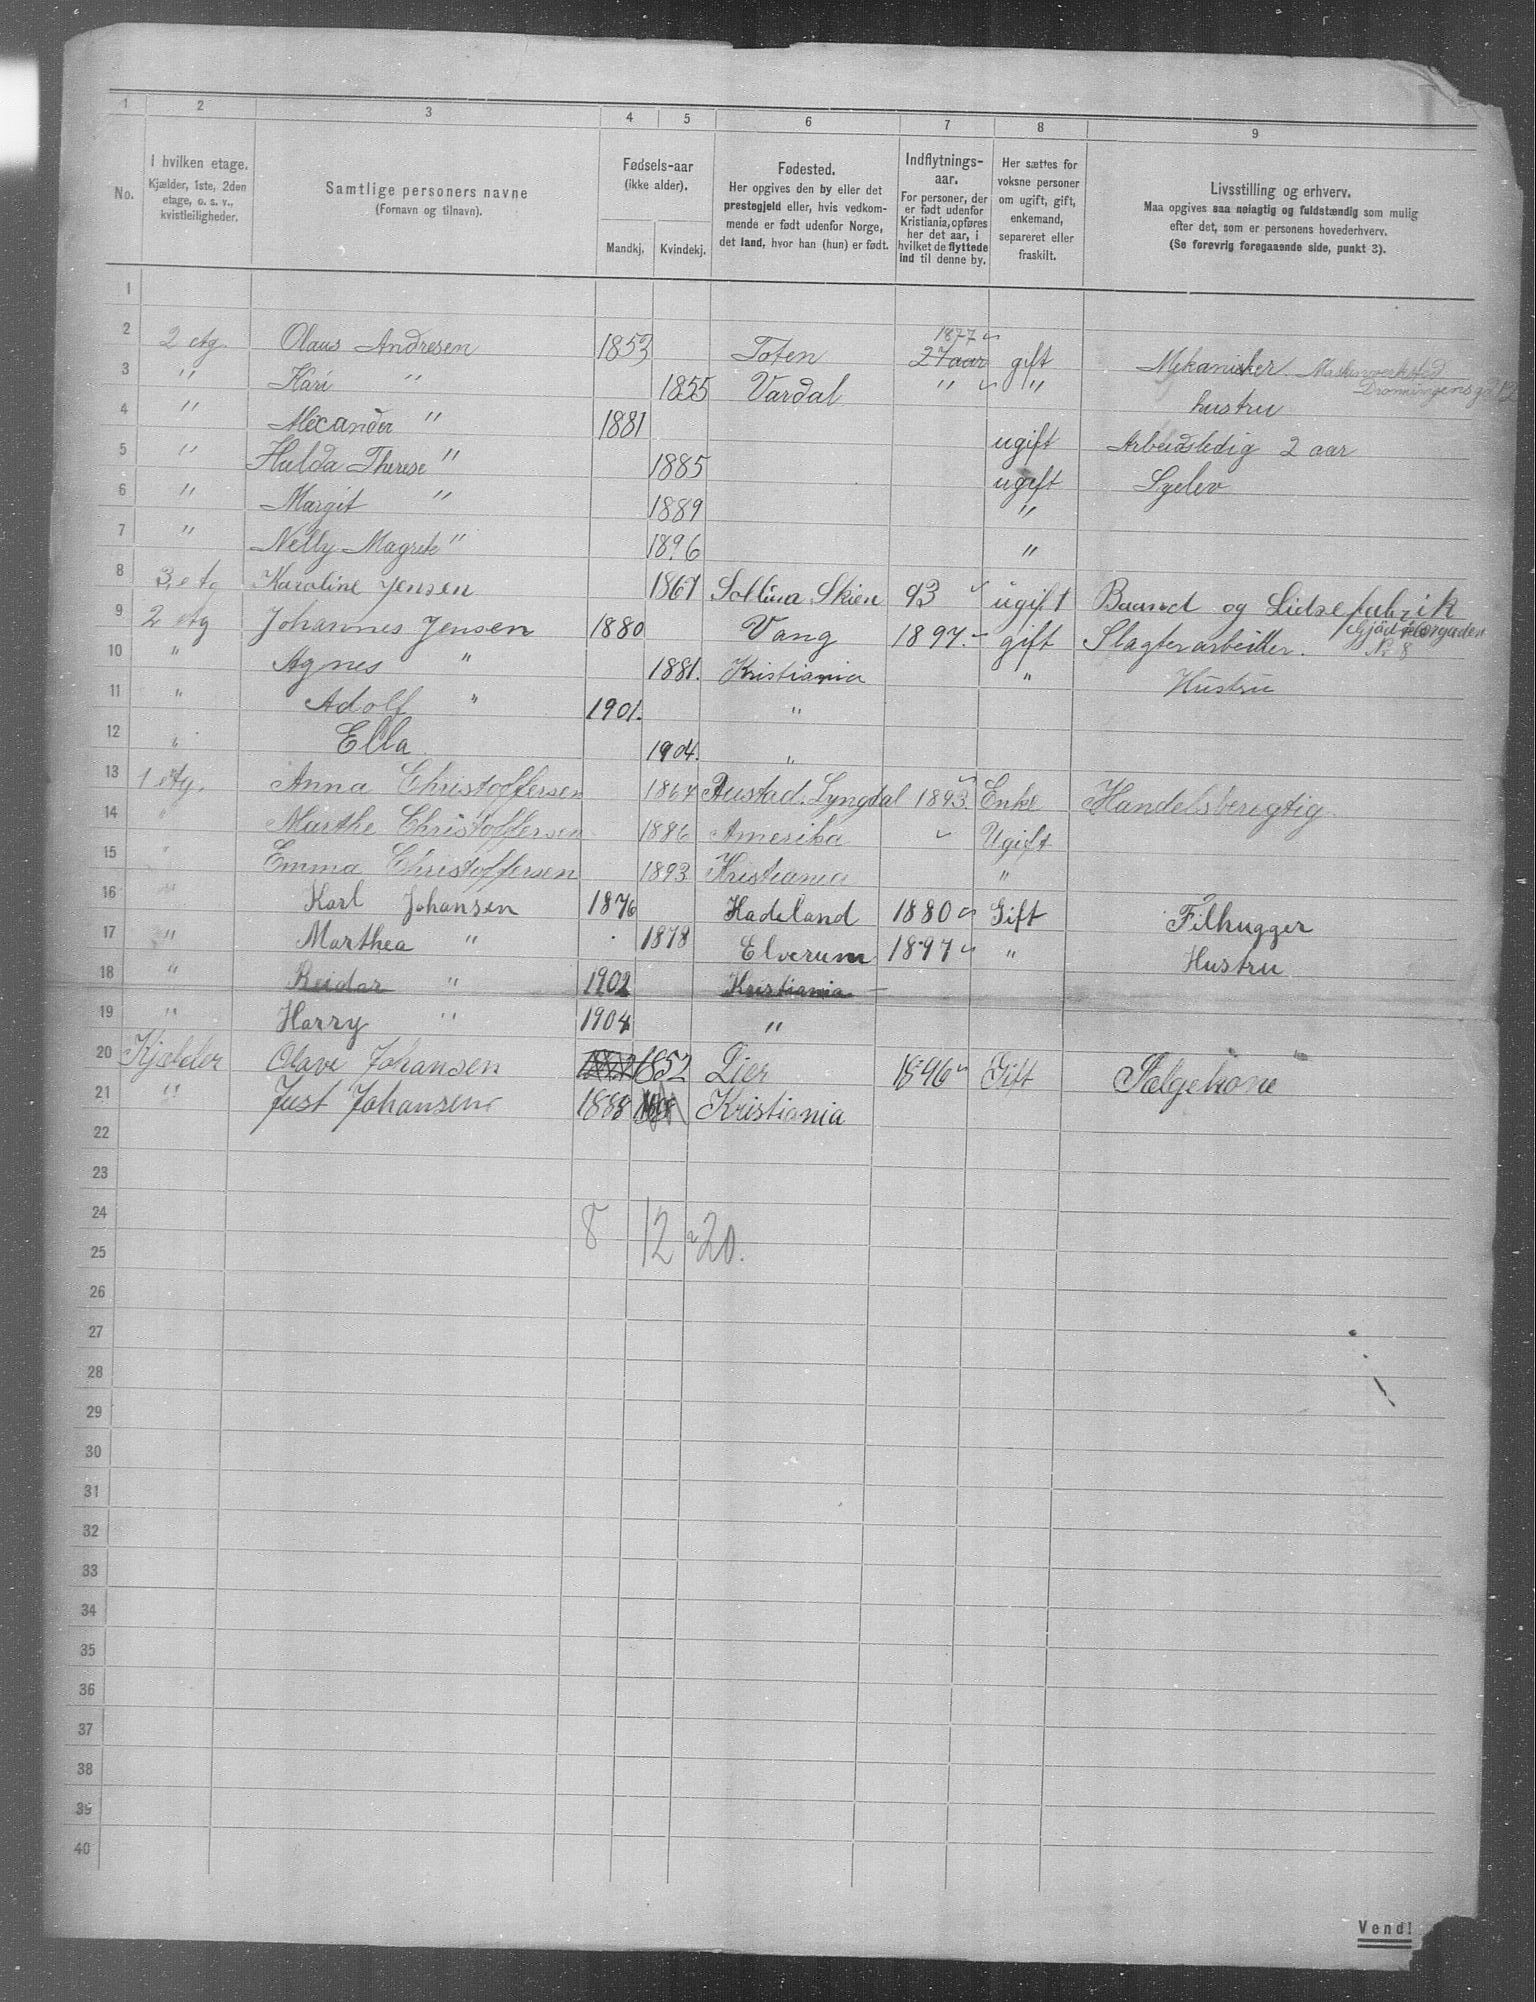 1 2 3 4 5 6 7 8 9
No.
I hvilken etage.
Kjælder, 1ste, 2den
etage, o. s. v.,
kvistleiligheder.
Samtlige personers navne
(Fornavn og tilnavn).
Fødsels-aar
(ikke alder).
Mandkj. Kvindekj.
Fødested.
Her opgives den by eller det
prestegjeld eller, hvis vedkom-
mende er født udenfor Norge,
det land, hvor han (hun) er født.
Indflytnings-
aar.
For personer, der
er født udenfor
Kristiania, opføres
her det aar, i
hvilket de flyttede
ind til denne by.
Her sættes for
voksne personer
om ugift, gift,
enkemand,
separeret eller
fraskilt.
Livsstilling og erhverv.
Maa opgives saa nøiagtig og fuldstændig som mulig
efter det, som er personens hovederhverv.
(Se forevrig foregaaende side, punkt 3).
1
2 2 etg. Olaus Andresen 1853 Toten 1877 27 aar gift Mekanisker
Dronningens
3 " Kari " 1855 Vardal " " hustru
4 " Alexander " 1881 ugift Arbeidsledig 2 aar
5 " Hulda Therese " 1885 ugift Syelev
6 " Margit " 1889 "
7 " Nelly Magrete " 1896 "
8 3 etg Karoline Jensen 1867 Skien 93 ugift Baand og Lidsefabrik
9 2 etg Johannes Jensen 1880 Vang 1897. gift Slagterarbeider.
No 8
10 " Agnes " 1881. Kristiania " Hustru
11 " Adolf " 1901. "
12 " Ella 1904. "
13 1 etg. Anna Christoffersen 1864 Austad. Lyngdal 1893. Enke Handelsberigtig
14 " Marthe Christoffersen 1886 Amerika Ugift
15 " Emma Christoffersen 1893 Kristiania "
16 " Karl Johansen 1876 Hadeland 1880 Gift Filhugger
17 " Marthea " 1878 Elverum 1897 " Hustru
18 " Reidar " 1902 Kristiania
19 " Harry " 1904 "
20 Kjælder Olave Johansen 1852 Lier 1896 Gift Salgekone
21 " Just Johansen 1888 Kristiania
22
23
24 8 12 20.
25
26
27
28
29
30
31
32
33
34
35
36
37
38
39
40
Vend!